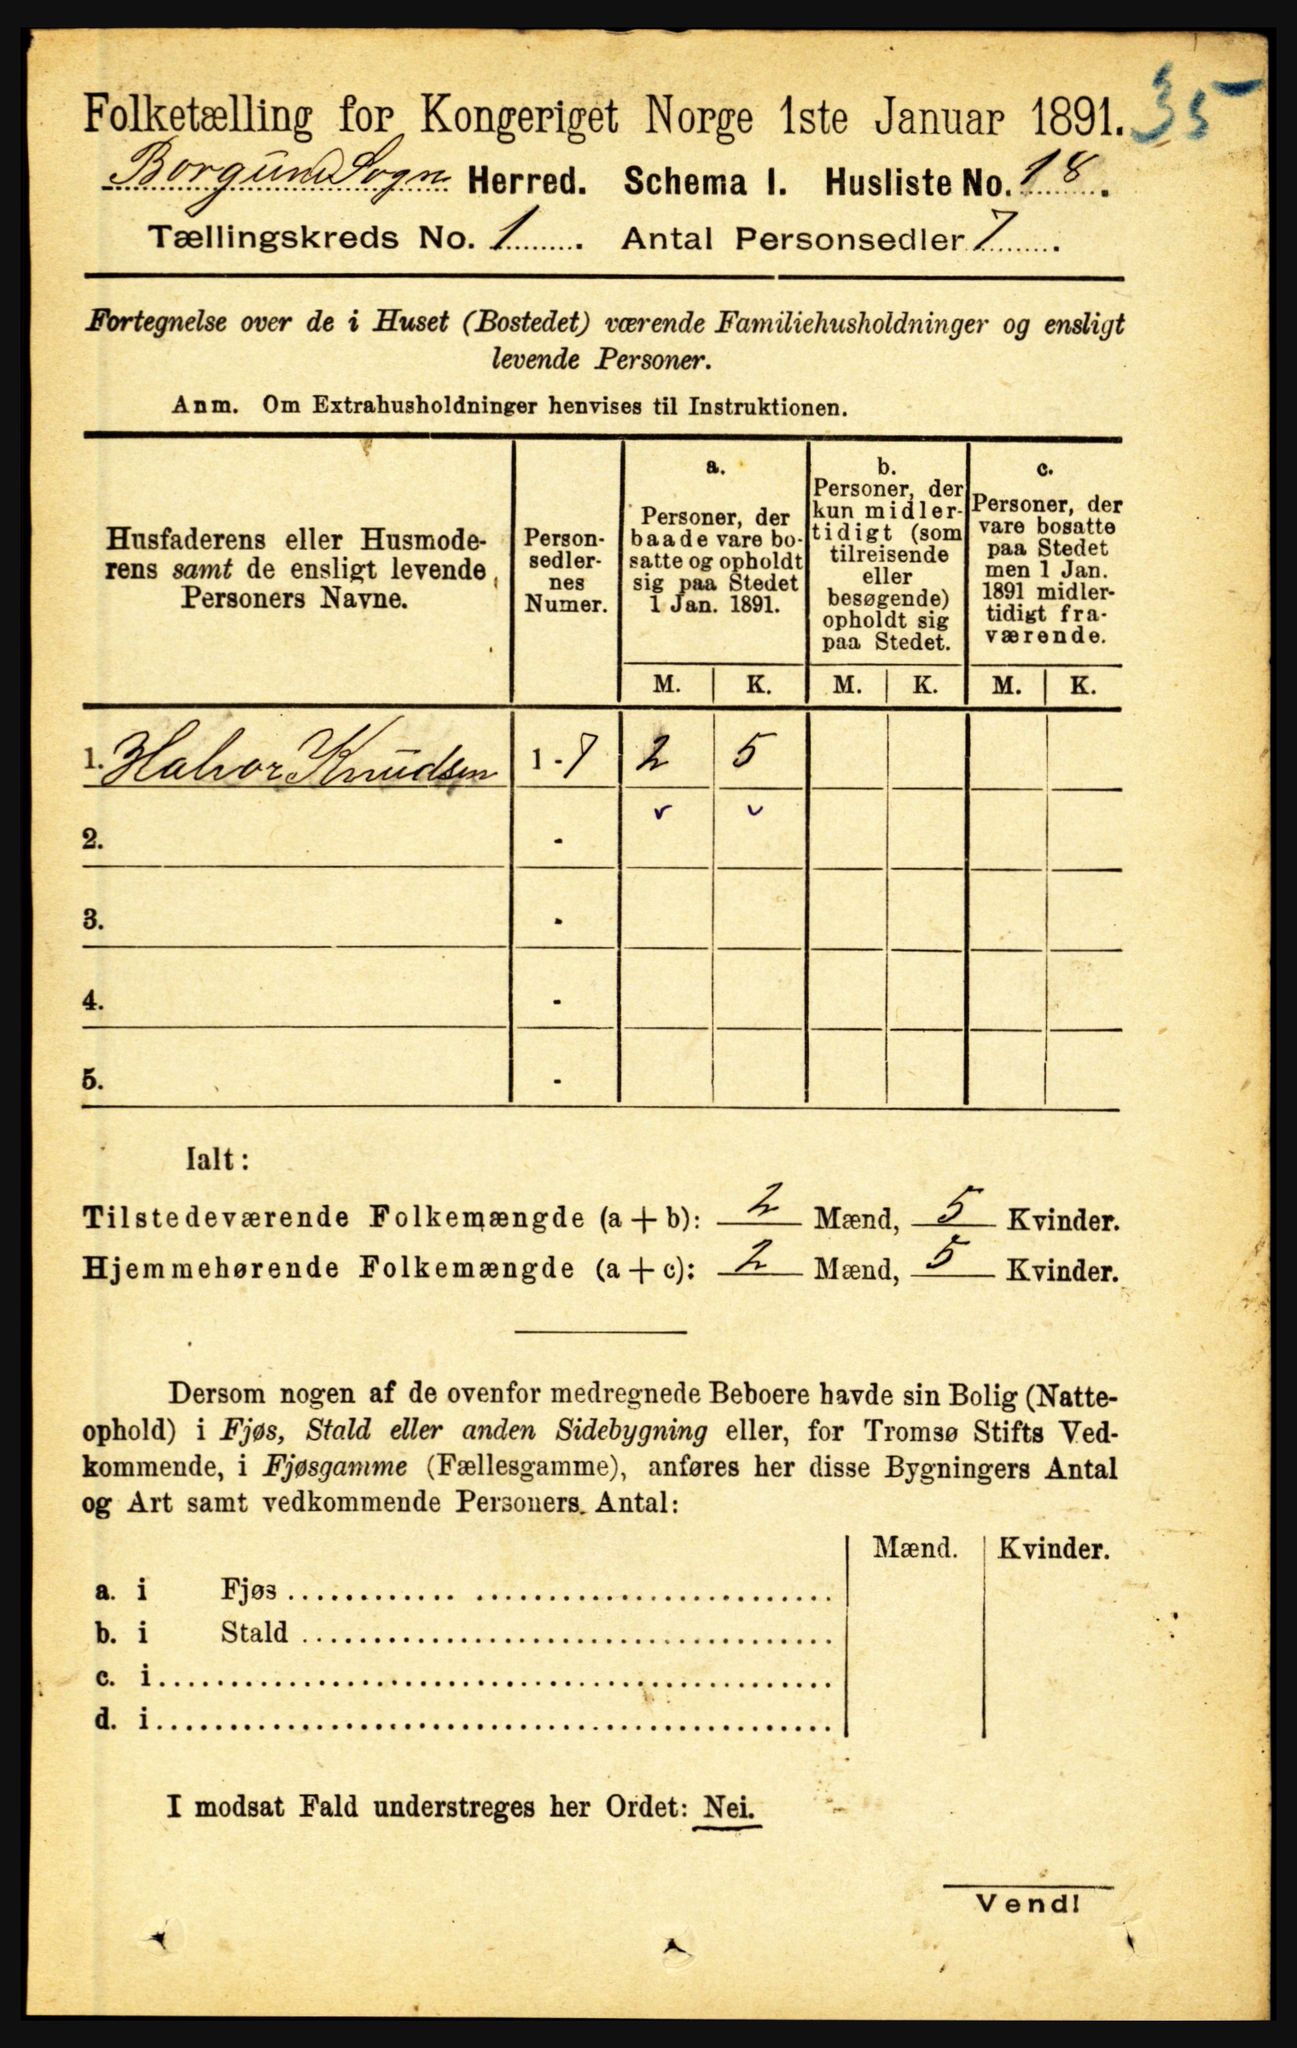 35
Folketælling for Kongeriget Norge 1ste Januar 1891.
Borgund Sogn Herred. Schema I. Husliste No. 18.
Tællingskreds No. 1. Antal Personsedler 7.
Fortegnelse over de i Huset (Bostedet) værende Familiehusholdninger og ensligt
levende Personer.
Anm. Om Extrahusholdninger henvises til Instruktionen.
Husfaderens eller Husmode-
rens samt de ensligt levende
Personers Navne.
Person-
sedler-
nes
Numer.
a.
Personer, der
baade vare bo-
satte og opholdt
sig paa Stedet
1 Jan. 1891.
b.
Personer, der
kun midler-
tidigt (som
tilreisende
eller
besøgende)
opholdt sig
paa Stedet.
c.
Personer, der
vare bosatte
paa Stedet
men 1 Jan.
1891 midler-
tidigt fra-
værende.
M. K. M. K. M. K.
1. Halvor Knudsen 1 - 7 2 5
2. -
3. -
4. -
5. -
Ialt:
Tilstedeværende Folkemængde (a + b): 2 Mænd, 5 Kvinder.
Hjemmehørende Folkemængde (a + c): 2 Mænd, 5 Kvinder.
Dersom nogen af de ovenfor medregnede Beboere havde sin Bolig (Natte-
ophold) i Fjøs, Stald eller anden Sidebygning eller, for Tromsø Stifts Ved-
kommende, i Fjøsgamme (Fællesgamme), anføres her disse Bygningers Antal
og Art samt vedkommende Personers Antal:
Mænd. Kvinder.
a. i Fjøs
b. i Stald
c. i
d. i
I modsat Fald understreges her Ordet: Nei.
Vend!